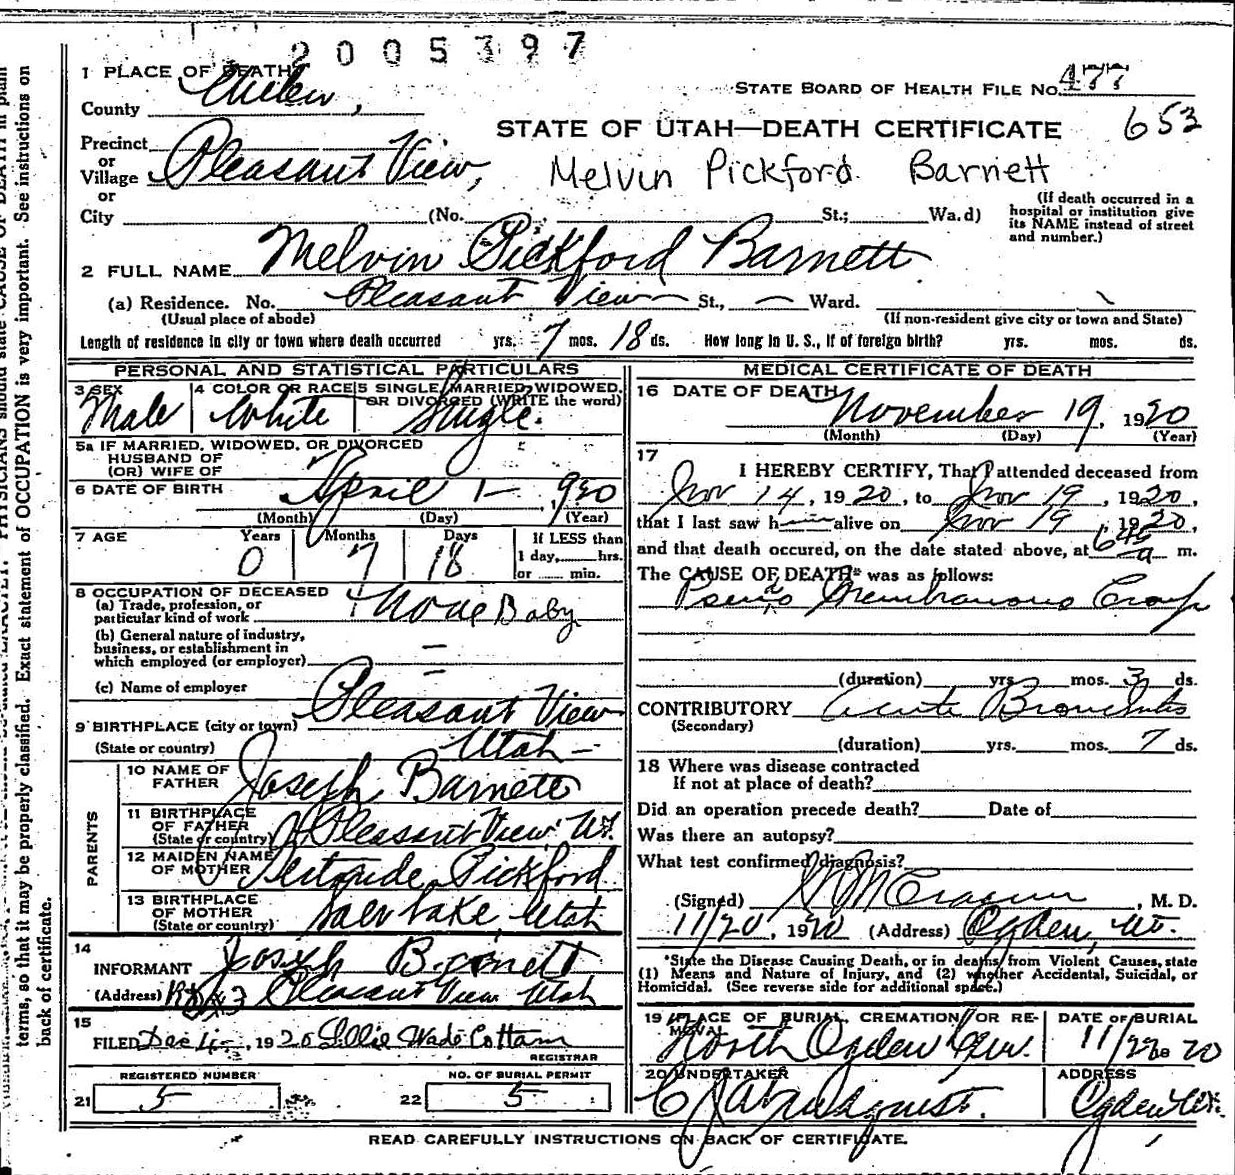 2005397
1 PLACE OF DEATH
STATE BOARD OF HEALTH FILE No. 477
County
653
STATE OF UTAH—DEATH CERTIFICATE
Precinct
or
Village Pleasant View,
Melvin Pickford Barnett
or
City (No. St.; Wa.d)
(If death occurred in a
hospital or institution give
its NAME instead of street
and number.)
2 FULL NAME Melvin Pickford Barnett
(a) Residence. No. Pleasant View St., — Ward.
(Usual place of abode) (If non-resident give city or town and State)
Length of residence in city or town where death occurred yrs. 7 mos. 18 ds. How long in U. S., if of foreign birth? yrs. mos. ds.
PERSONAL AND STATISTICAL PARTICULARS
3 SEX Male
4 COLOR OR RACE White
5 SINGLE, MARRIED, WIDOWED,
OR DIVORCED (WRITE the word)
Single.
5a IF MARRIED, WIDOWED, OR DIVORCED
HUSBAND OF
(OR) WIFE OF
6 DATE OF BIRTH April 1 — 1920
(Month) (Day) (Year)
7 AGE Years Months Days If LESS than
0 7 18 1 day, hrs.
or min.
8 OCCUPATION OF DECEASED
(a) Trade, profession, or
particular kind of work None Baby
(b) General nature of industry,
business, or establishment in
which employed (or employer) —
(c) Name of employer —
9 BIRTHPLACE (city or town) Pleasant View
(State or country) Utah —
PARENTS
10 NAME OF
FATHER Joseph Barnett
11 BIRTHPLACE
OF FATHER
(State or country) Pleasant View, Ut.
12 MAIDEN NAME
OF MOTHER Gertrude Pickford
13 BIRTHPLACE
OF MOTHER
(State or country) Salt Lake, Utah
14
INFORMANT Joseph Barnett
(Address) Pleasant View Utah
15
FILED Dec 4 —, 1920 Lillie Wade Cottam
REGISTRAR
REGISTERED NUMBER
21 5
NO. OF BURIAL PERMIT
22 5
MEDICAL CERTIFICATE OF DEATH
16 DATE OF DEATH
November 19, 1920
(Month) (Day) (Year)
17
I HEREBY CERTIFY, That I attended deceased from
Nov 14, 1920, to Nov 19, 1920,
that I last saw h alive on Nov 19, 1920,
and that death occured, on the date stated above, at 645 a m.
The CAUSE OF DEATH* was as follows:
Membranous Croup
(duration) yrs. mos. 3 ds.
CONTRIBUTORY Acute Bronchitis
(Secondary)
(duration) yrs. mos. 7 ds.
18 Where was disease contracted
If not at place of death?
Did an operation precede death? Date of
Was there an autopsy?
What test confirmed diagnosis?
(Signed) , M. D.
11/20, 1920 (Address) Ogden, Ut.
*State the Disease Causing Death, or in deaths from Violent Causes, state
(1) Means and Nature of Injury, and (2) whether Accidental, Suicidal, or
Homicidal. (See reverse side for additional space.)
19 PLACE OF BURIAL, CREMATION, OR RE-
MOVAL
North Ogden
DATE OF BURIAL
11/22 1920
20 UNDERTAKER
ADDRESS
Ogden Ut.
READ CAREFULLY INSTRUCTIONS ON BACK OF CERTIFICATE.
terms, so that it may be properly classified. Exact statement of OCCUPATION is very important. See instructions on
back of certificate.